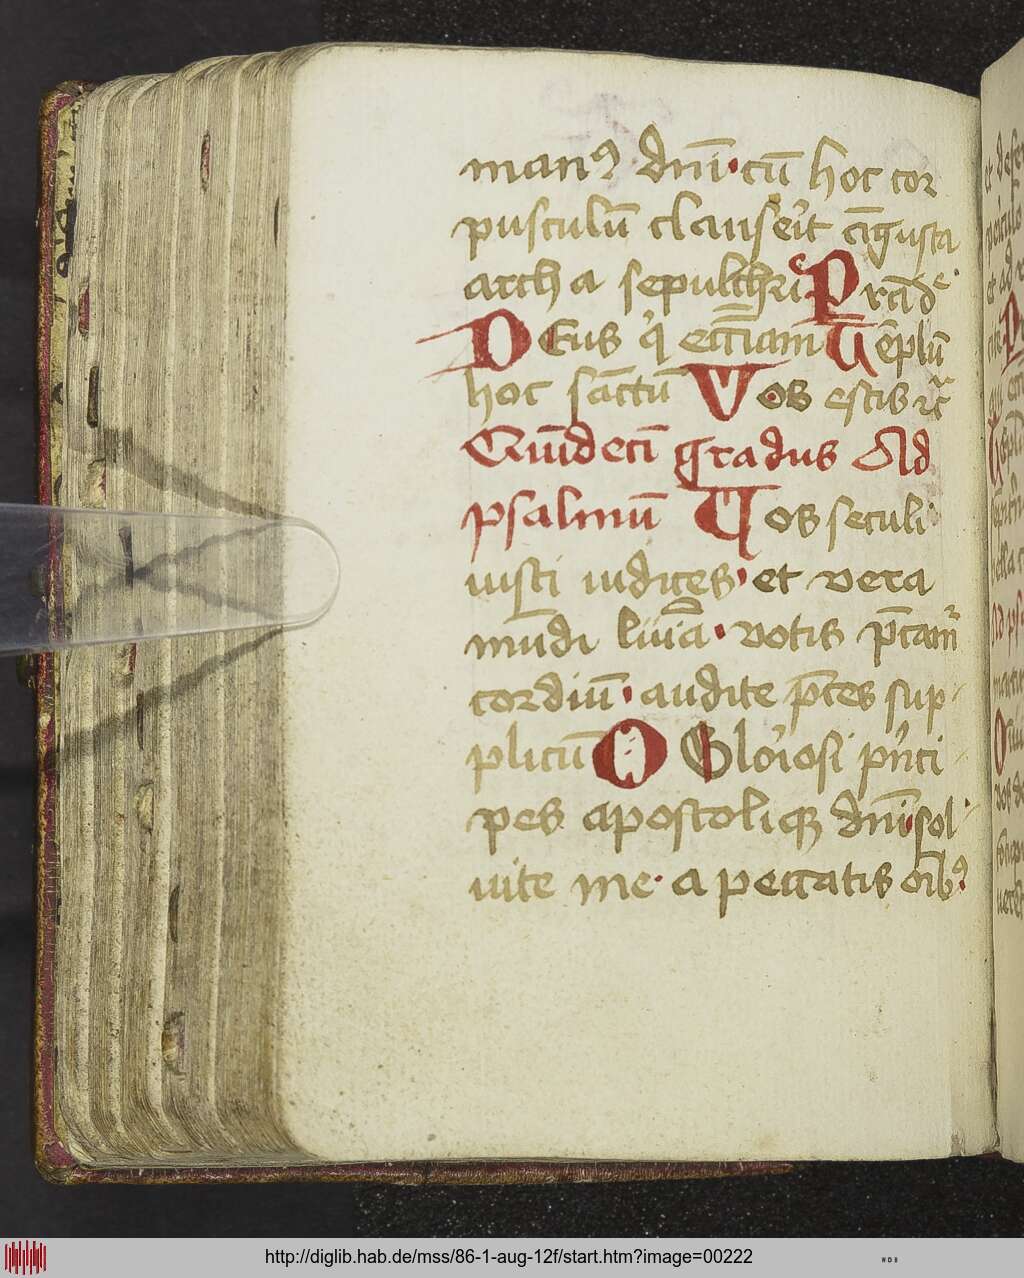 manꝰ dnī cū hoc cor
pusculū clauserit āgusta
archa sepulchri P
Deus q̇ etiam Tēplū
hoc sāctū Vos estis
Quīdeci gradus Ad
psalmū Uos seculi
iusti iudices et vera
mūdi lūīa votis p̄camr̄
cordiū audite p̄ces sup
plicū O Gloriosi prīci
pes apostoliqꝫ dnī sol
uite me a peccatis oīb9
http://diglib.hab.de/mss/86-1-aug-12f/start.htm?image=00222